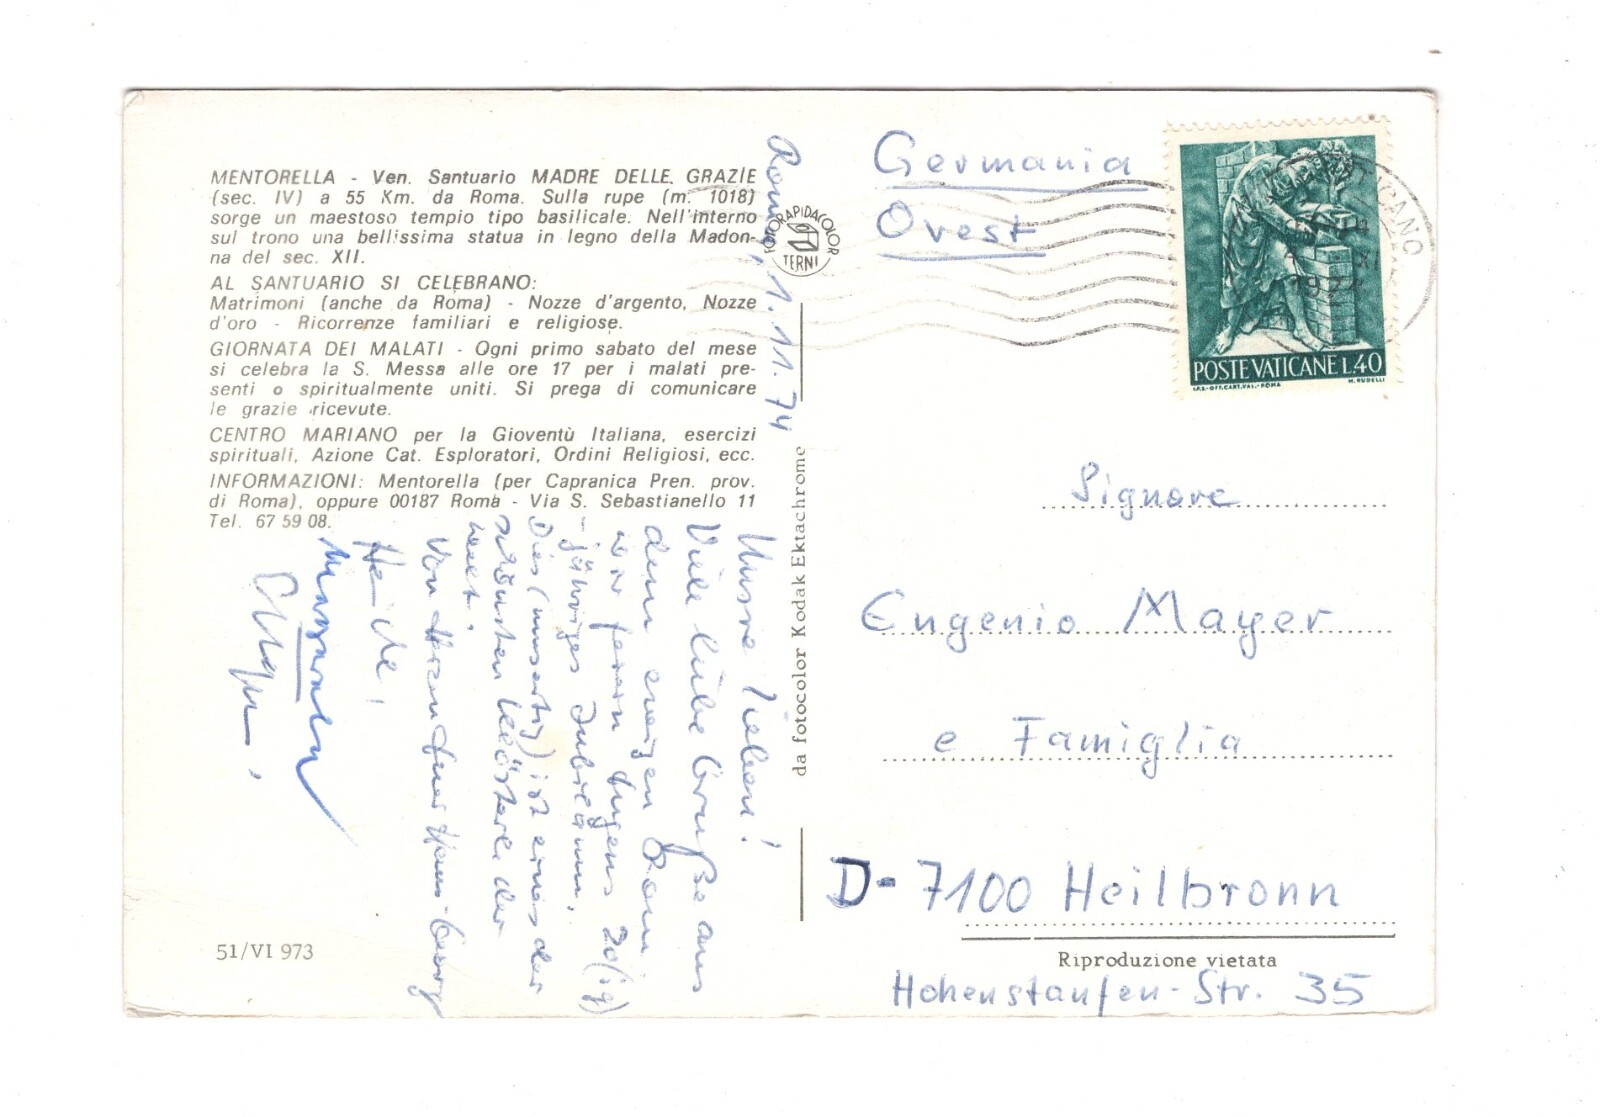 MENTORELLA - Ven. Santuario MADRE DELLE GRAZIE
(sec. IV) a 55 Km. da Roma. Sulla rupe (m. 1018)
sorge un maestoso tempio tipo basilicale. Nell'interno
sul trono una bellissima statua in legno della Madon-
na del sec. XII.
AL SANTUARIO SI CELEBRANO:
Matrimoni (anche da Roma) - Nozze d'argento, Nozze
d'oro - Ricorrenze familiari e religiose.
GIORNATA DEI MALATI - Ogni primo sabato del mese
si celebra la S. Messa alle ore 17 per i malati pre-
senti o spiritualmente uniti. Si prega di comunicare
le grazie ricevute.
CENTRO MARIANO per la Gioventù Italiana, esercizi
spirituali, Azione Cat. Esploratori, Ordini Religiosi, ecc.
INFORMAZIONI: Mentorella (per Capranica Pren. prov.
di Roma), oppure 00187 Roma - Via S. Sebastianello 11
Tel. 67 59 08.
51/VI 973
Rom, 1.11.74
Unsre Lieben!
Viele liebe Grüße aus
dem ewigen Rom
wir feiern Eugens 20(ig)
-jähriges Jubiläum.
Dies (unsertig) ist eines der
schönsten Klösterle der
Welt.
Von Hans-Georg
FOTORAPIDACOLOR
TERNI
da fotocolor Kodak Ektachrome
Germania
Ovest
POSTE VATICANE L.40
I.P.S.-OFF.CART.VAL.-ROMA
M. RUDELLI
Signore
Eugenio Mayer
e Famiglia
D-7100 Heilbronn
Riproduzione vietata
Hohenstaufen-Str. 35